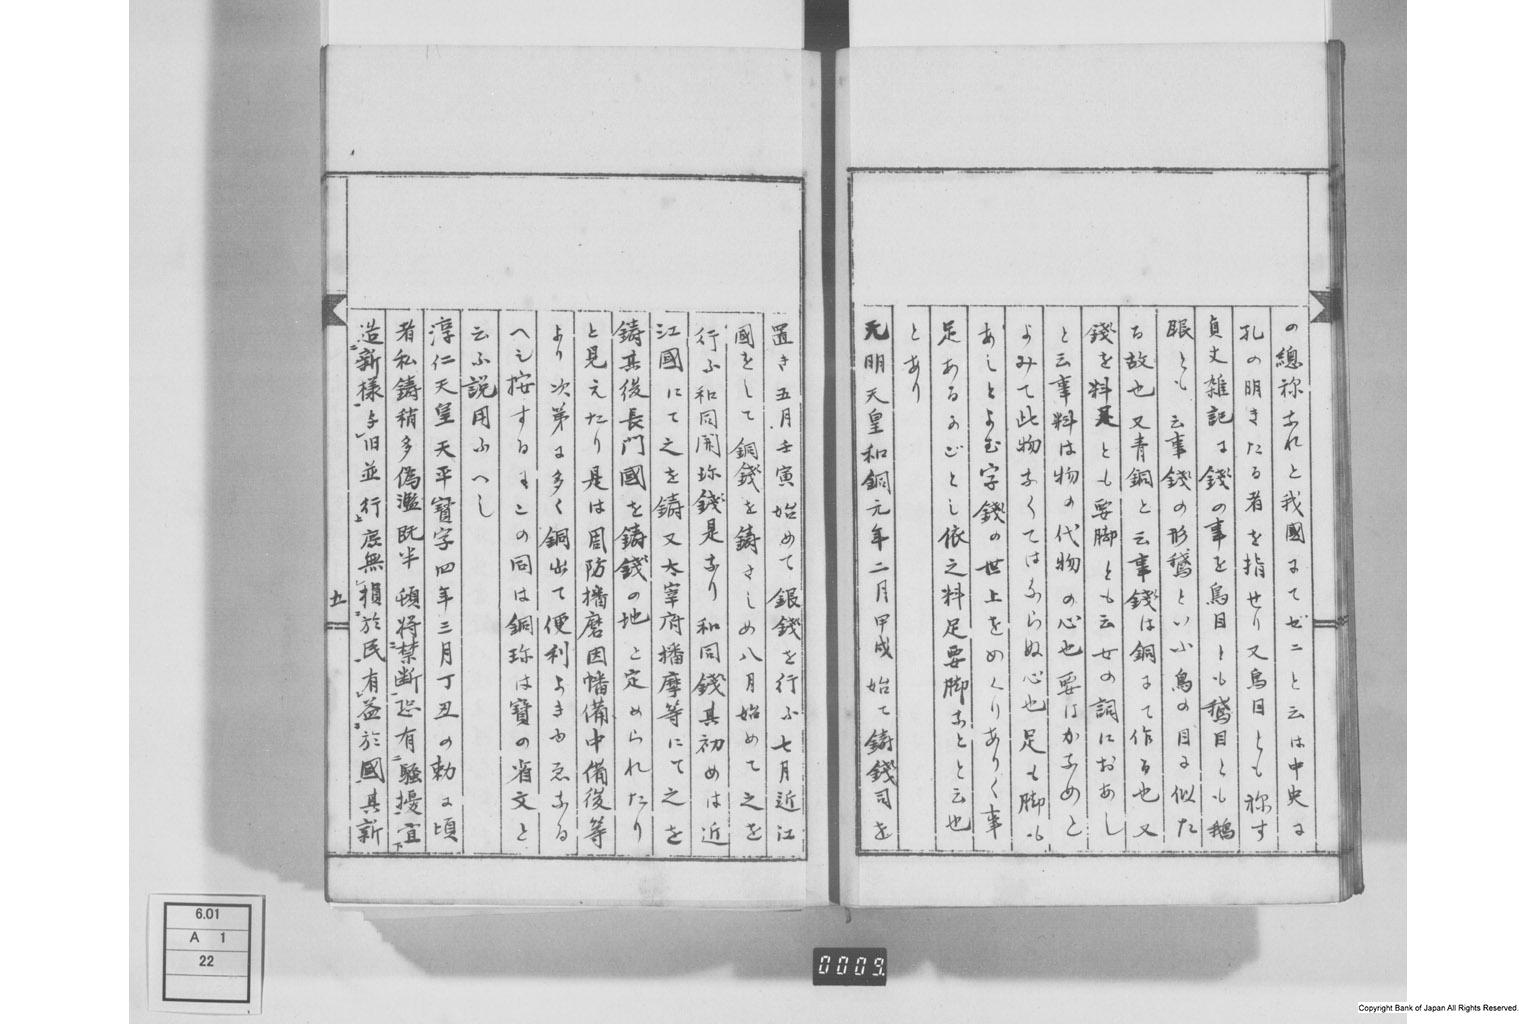 の總称なれと我國にてゼニと云は中央に
孔の明きたる者を指せり又鳥目とも称す
貞丈雑記に錢の事を鳥目とも鵝目とも鵝
眼とも云事錢の形鵝といふ鳥の目に似た
る故也又青銅と云事錢は銅にて作る也又
錢を料足とも要脚とも云女の詞におあし
と云事料は物の代物の心也要はかなめと
よみて此物なくてはならぬ心也足も脚も
あしとよむ字錢の世上をめくりありく事
足あるかごとし依之料足要脚なとと云也
とあり
元明天皇和銅元年二月甲戌始て鋳錢司を
置き五月壬寅始めて銀錢を行ふ七月近江
國をして銅錢を鋳さしめ八月始めて之を
行ふ和同開珎錢是なり和同錢其初めは近
江國にて之を鋳又太宰府播摩等にて之を
鋳其後長門國を鋳錢の地と定められたり
と見えたり是は周防播磨因幡備中備後等
より次第に多く銅出て便利よきゆゑなる
へし按するにこの同は銅珎は寶の省文と
云ふ説用ふへし
淳仁天皇天平寶字四年三月丁丑の勅に頃
者私鋳稍多偽濫既半頓将禁断恐有騒擾宜
造新様与旧並行庶無損於民有益於國其新
五
6.01
A 1
22
0009.
Copyright Bank of Japan All Rights Reserved.